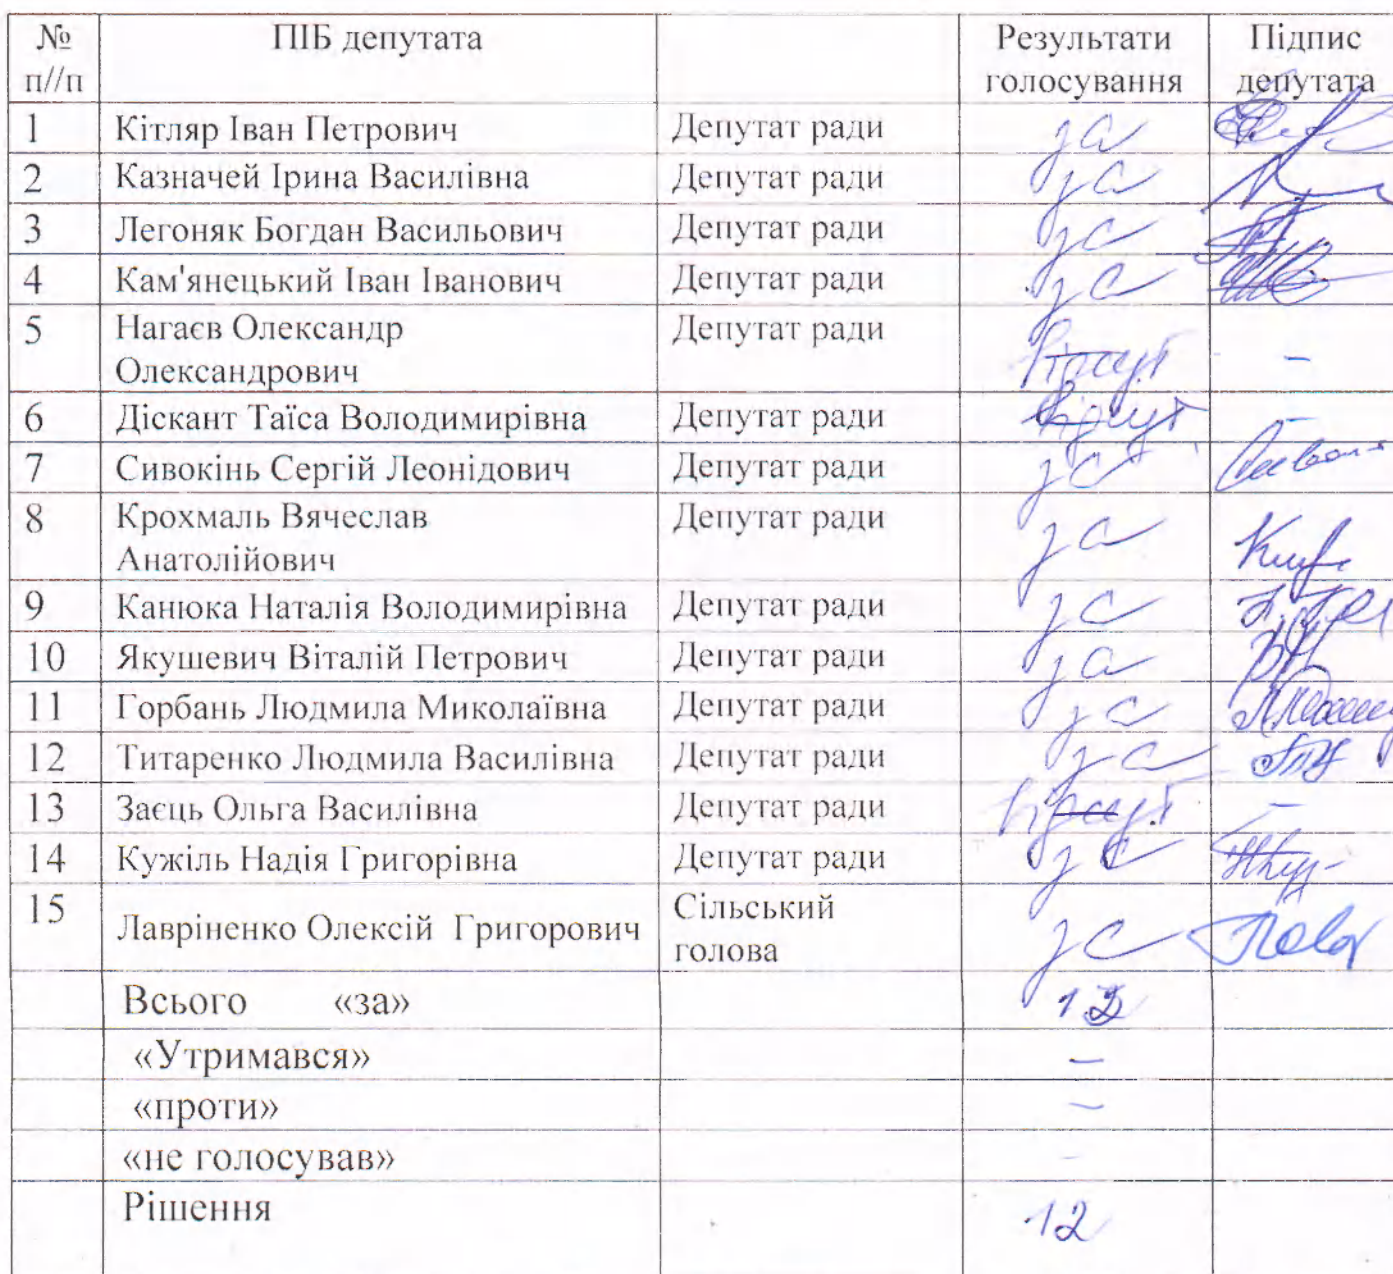 № п//п ПІБ депутата Результати голосування Підпис депутата
1 Кітляр Іван Петрович Депутат ради за
2 Казначей Ірина Василівна Депутат ради за
3 Легоняк Богдан Васильович Депутат ради за
4 Кам'янецький Іван Іванович Депутат ради за
5 Нагаєв Олександр Олександрович Депутат ради –
6 Діскант Таїса Володимирівна Депутат ради –
7 Сивокінь Сергій Леонідович Депутат ради за
8 Крохмаль Вячеслав Анатолійович Депутат ради за
9 Канюка Наталія Володимирівна Депутат ради за
10 Якушевич Віталій Петрович Депутат ради за
11 Горбань Людмила Миколаївна Депутат ради за
12 Титаренко Людмила Василівна Депутат ради за
13 Заєць Ольга Василівна Депутат ради –
14 Кужіль Надія Григорівна Депутат ради за
15 Лавріненко Олексій Григорович Сільський голова за
Всього «за» 12
«Утримався» –
«проти» –
«не голосував» –
Рішення 12